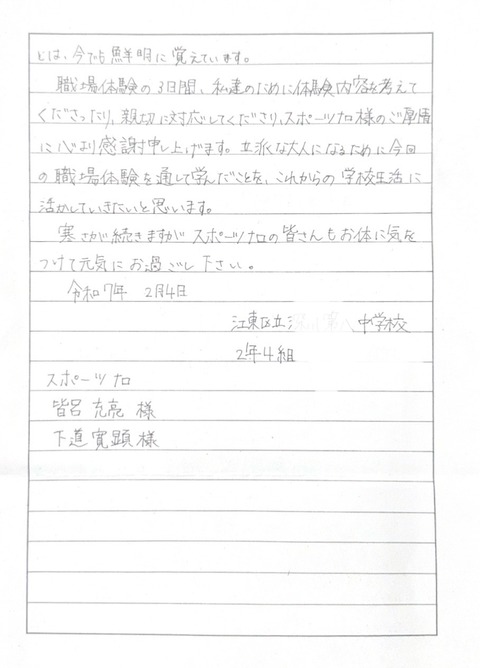 とは、今でも鮮明に覚えています。
職場体験の3日間、私達のために体験内容を考えて
くださったり、親切に対応してくださり、スポーツナロ様のご厚情
に心より感謝申し上げます。立派な大人になるために今回
の職場体験を通して学んだことを、これからの学校生活に
活かしていきたいと思います。
寒さが続きますがスポーツナロの皆さんもお体に気を
つけて元気にお過ごし下さい。
令和7年 2月4日
江東区立 中学校
2年4組
スポーツナロ
皆呂 充亮 様
下道 寛顕 様